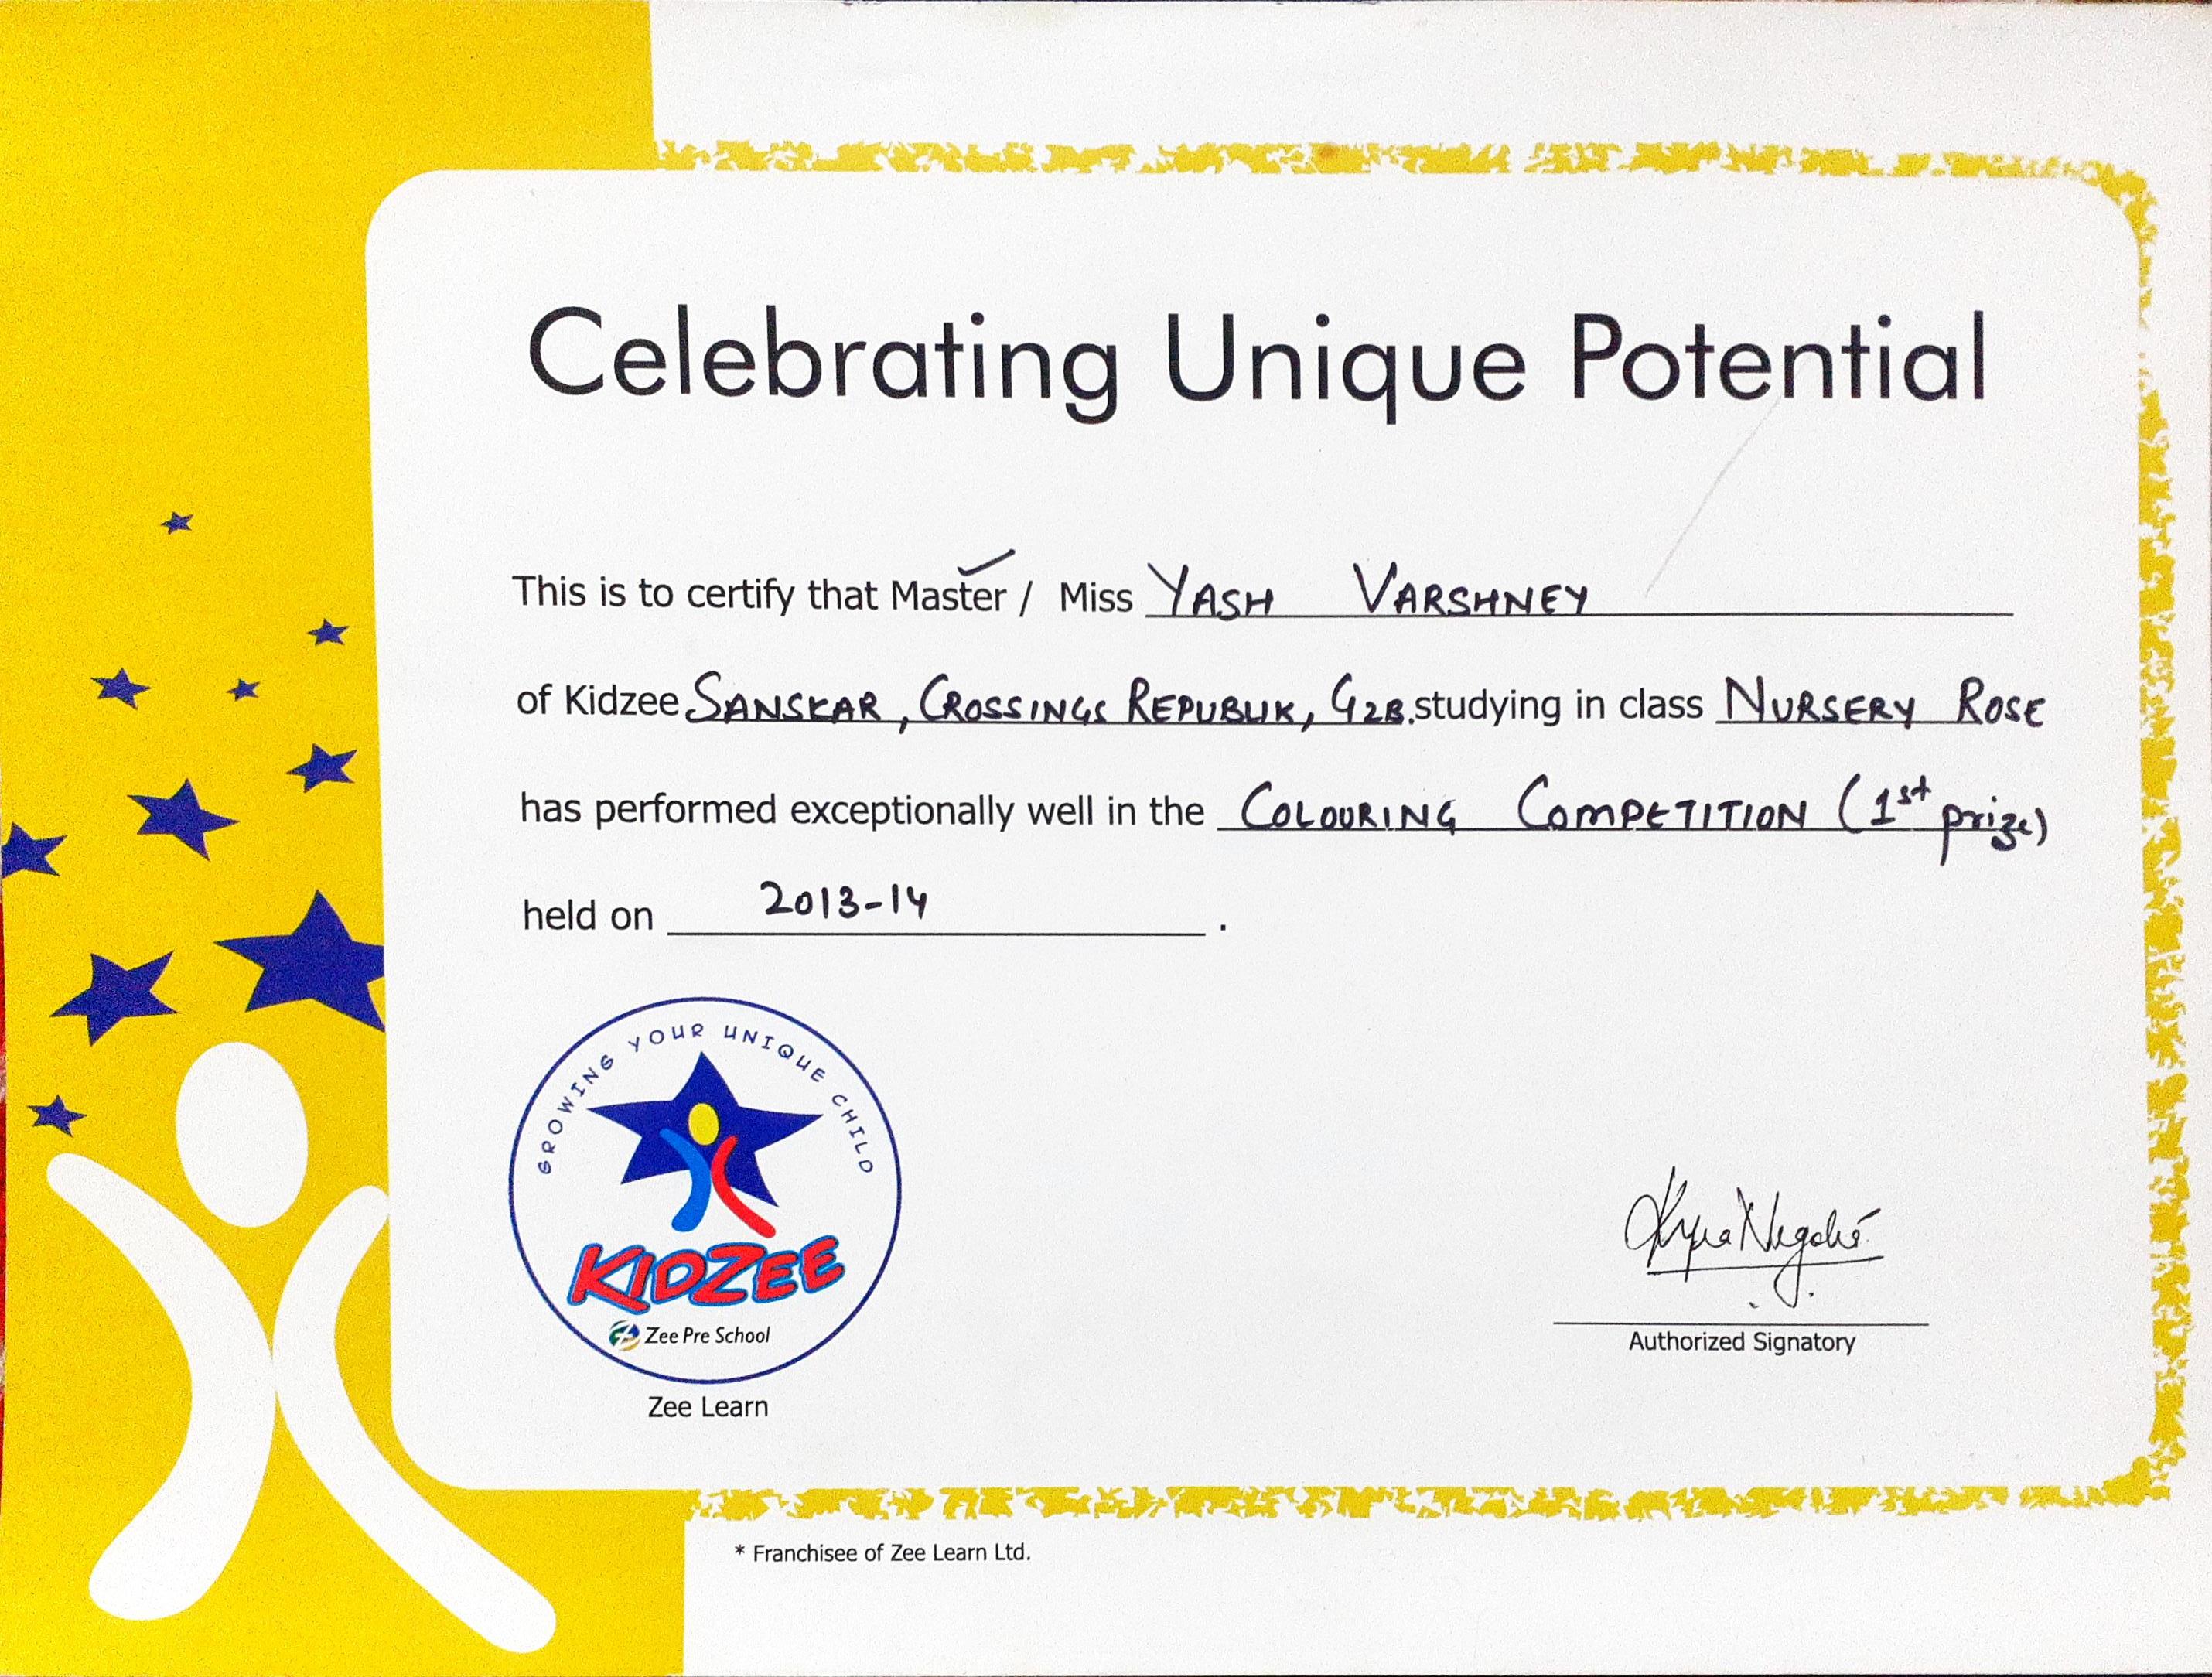 Celebrating Unique Potential
This is to certify that Master / Miss YASH VARSHNEY
of Kidzee SANSKAR, CROSSINGS REPUBLIK, GZB. studying in class NURSERY ROSE
has performed exceptionally well in the COLOURING COMPETITION (1st prize)
held on 2013-14 .
GROWING YOUR UNIQUE CHILD
KIDZEE
Zee Pre School
Zee Learn
Authorized Signatory
* Franchisee of Zee Learn Ltd.